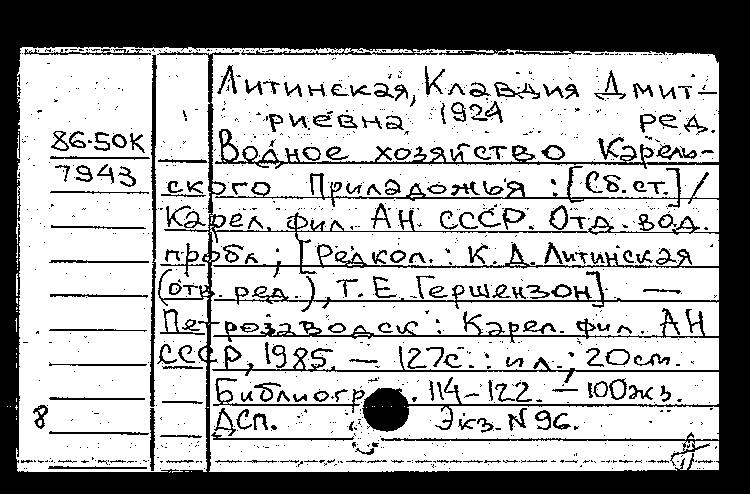 Литинская, Клавдия Дмит-
риевна 1924 ред.
86-50К
7943
Водное хозяйство Карель-
ского Приладожья : [Сб. ст.] /
Карел. фил. АН СССР. Отд. вод.
пробл. ; [Редкол. : К. Д. Литинская
(отв. ред.), Т. Е. Гершензон]. —
Петрозаводск : Карел. фил. АН
СССР, 1985. — 127с. : ил. ; 20см.
Библиогр. 114-122. — 100экз.
8 ДСП. Экз. N 96.